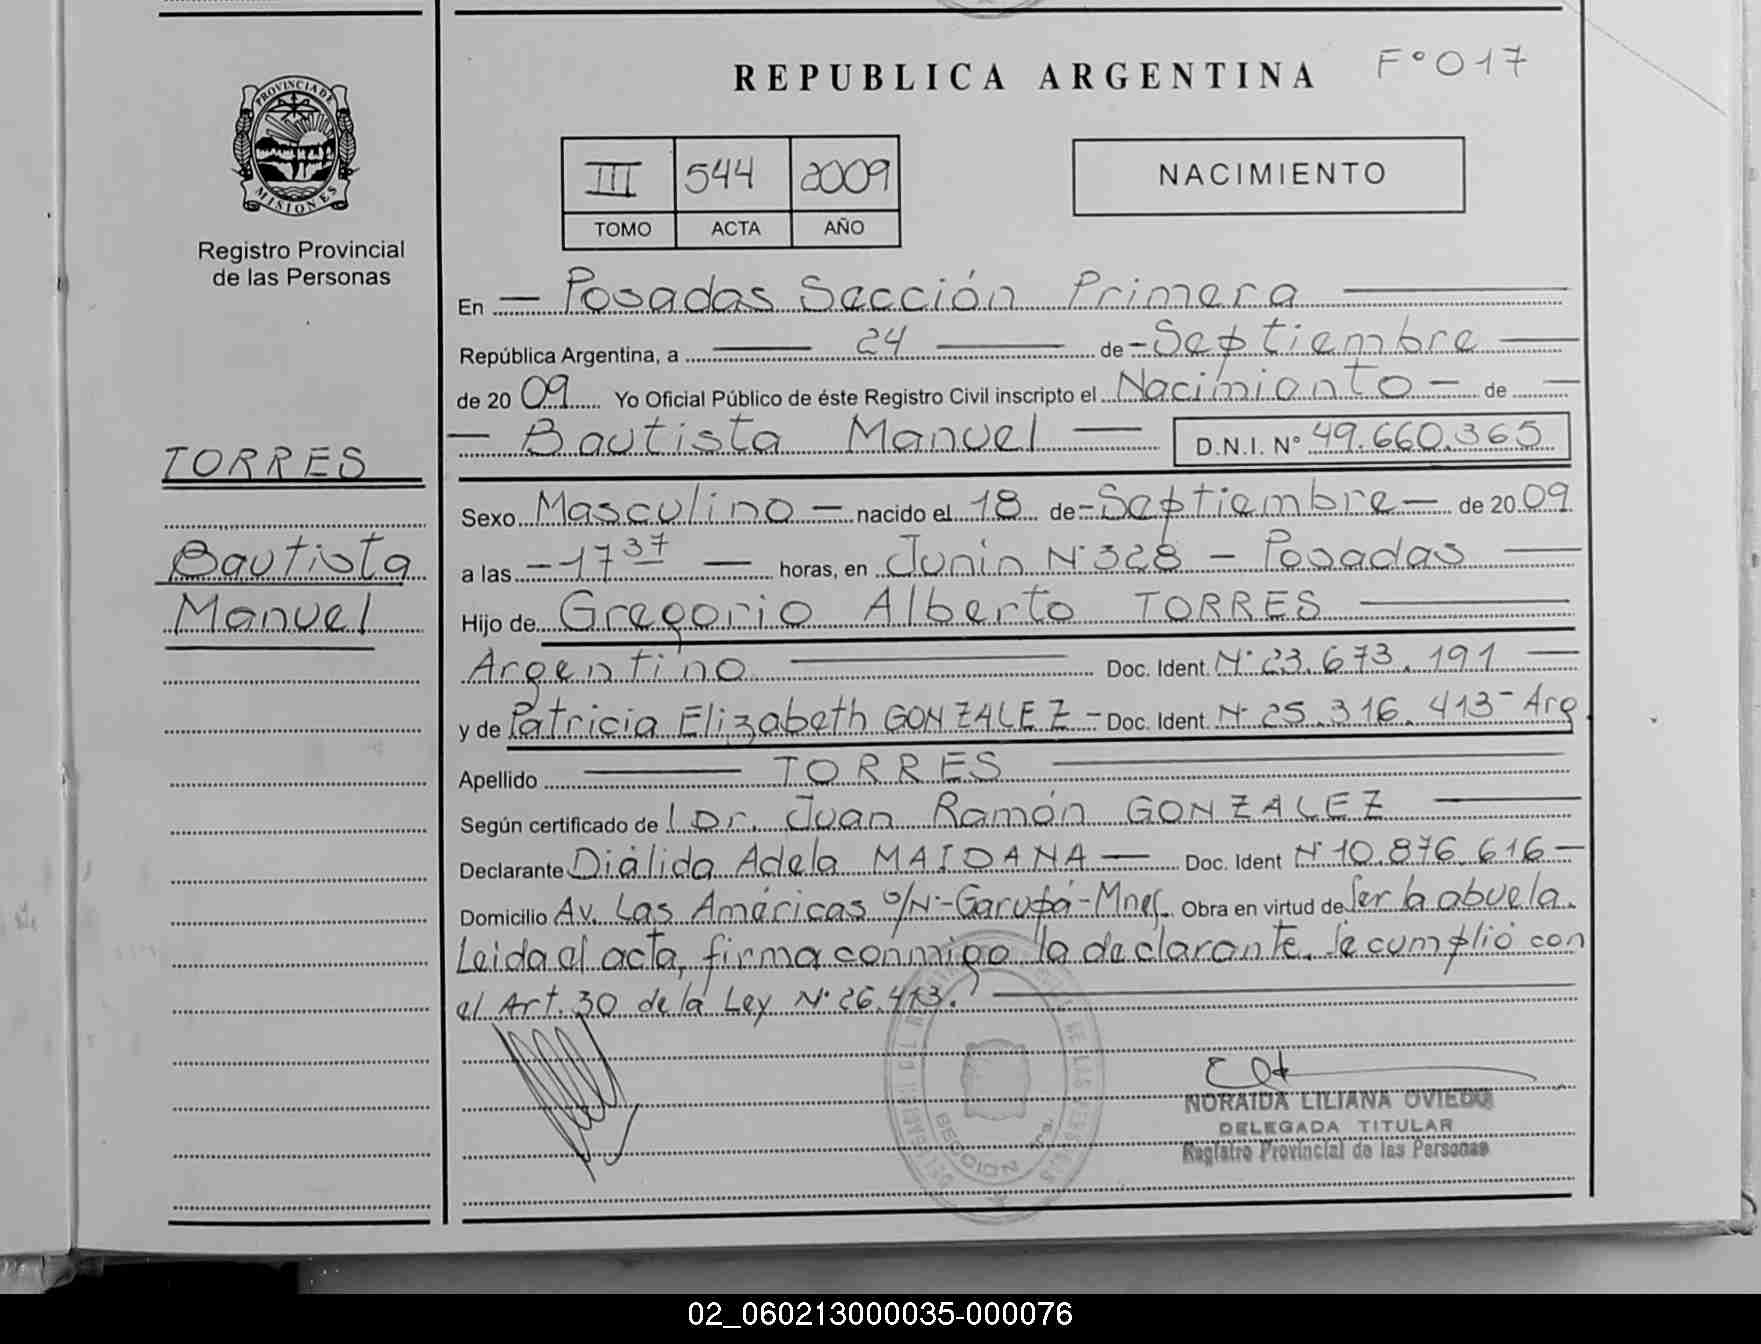 F° 017
REPUBLICA ARGENTINA
PROVINCIA DE
MISIONES
Registro Provincial
de las Personas
III 544 2009
TOMO ACTA AÑO
NACIMIENTO
En — Posadas Sección Primera —
República Argentina, a — 24 — de - Septiembre —
de 20 09 Yo Oficial Público de éste Registro Civil inscripto el Nacimiento — de —
— Bautista Manuel — D.N.I. N° 49.660.365
TORRES
Bautista
Manuel
Sexo Masculino — nacido el 18 de - Septiembre — de 20 09
a las - 17 37 — horas, en Junín N° 328 - Posadas —
Hijo de Gregorio Alberto TORRES —
Argentino — Doc. Ident. N° 23.673.191 —
y de Patricia Elizabeth GONZALEZ - Doc. Ident. N° 25.316.413 - Arg
Apellido — TORRES —
Según certificado de l Dr. Juan Ramón GONZALEZ —
Declarante Diálida Adela MAIDANA — Doc. Ident N° 10.876.616 —
Domicilio Av. Las Américas s/N°-Garupá-Mnes. Obra en virtud de Ser la abuela.
Leida el acta, firma conmigo la declarante. Se cumplió con
el Art. 30 de la Ley N° 26.413. —
SECCION 1ra.
DE LAS PERSONAS
NORAIDA LILIANA OVIEDO
DELEGADA TITULAR
Registro Provincial de las Personas
02_060213000035-000076